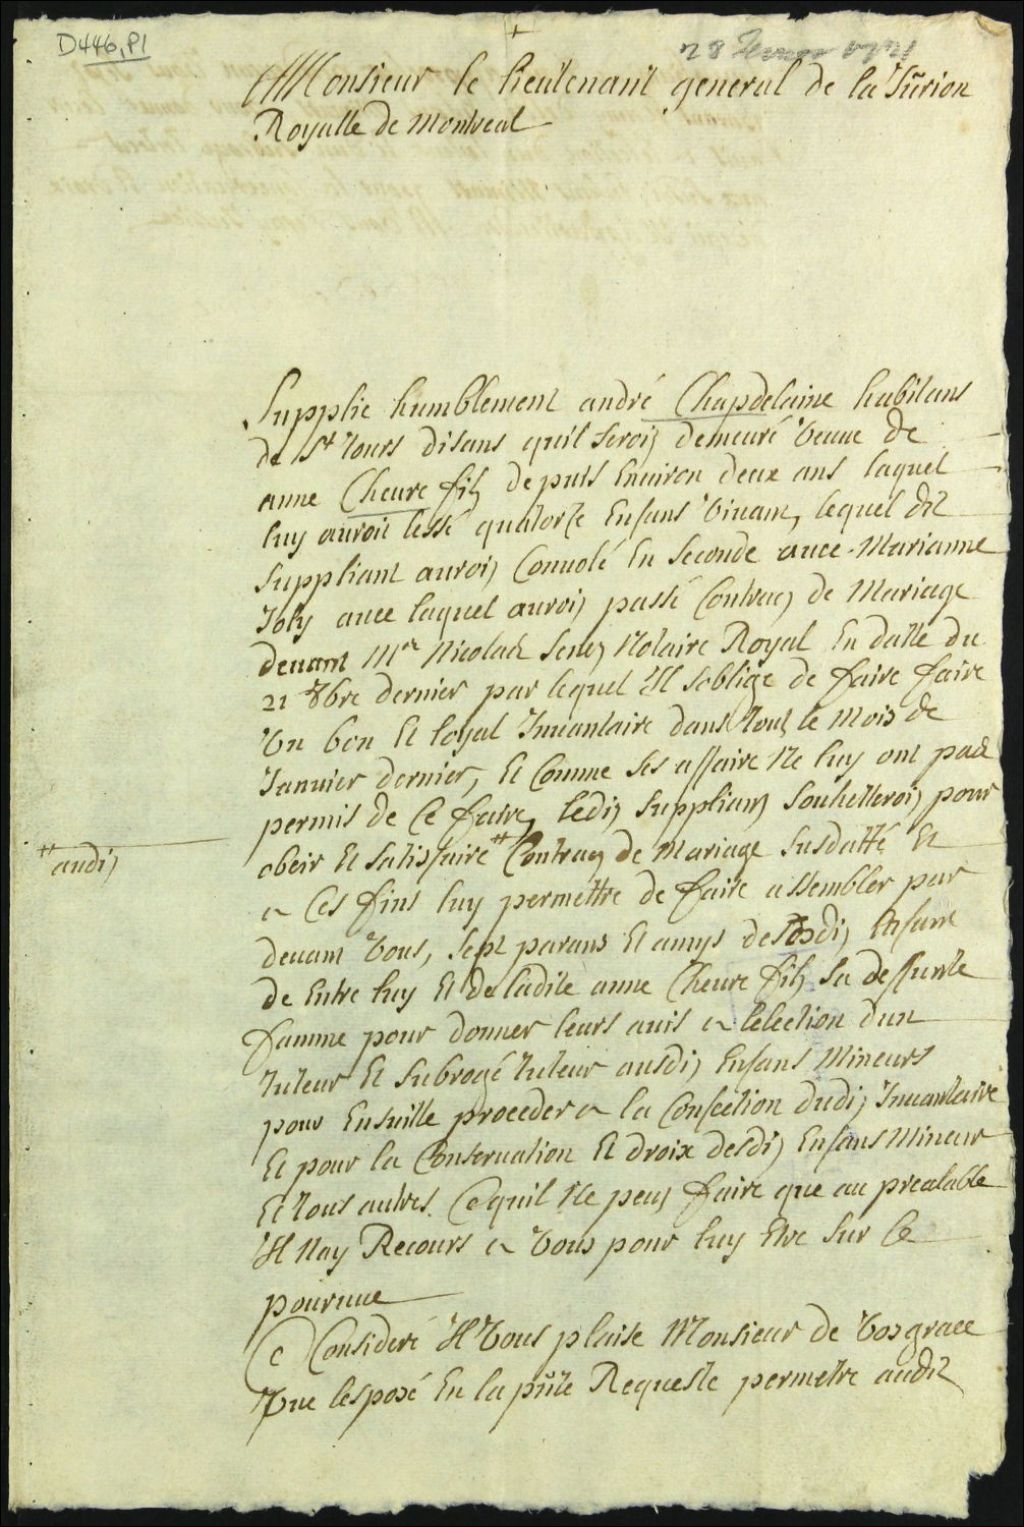 D446, P1
28
Monsieur le lieutenant general de la Jurion
Royalle de Montreal
Supplie humblement andré Chapdelaine habitans
de St Tours disans quil seroit demeuré veuue de
anne Cheure fils depuis Enuiron deux ans laquel
luy auroit lessé quatorze Enfans viuant, lequel dit
suppliant auroit Conuolé En seconde auec Marianne
Joly auec laquel auroit passé Contract de Mariage
deuant Mre Nicolas Senet Notaire Royal En datte du
21 8bre dernier par lequel Il soblige de faire faire
Vn bon Et loyal Inuantaire dans tout le Mois de
Januier dernier, Et Comme ses affaire Ne luy ont pas
permis de Ce faire, ledit suppliant souhetteroit pour
obeir Et satisfaire # Contract de Mariage susdatté Et
# audit
a Ces fins luy permettre de faire assembler par
deuant Vous, sept parans Et amys desdit Enfans
de Entre luy Et de ladite anne Cheure fils sa deffunte
famme pour donner leurs auis a lelection dun
tuteur Et subrogé tuteur ausdit Enfans Mineurs
pour Ensuitte proceder a la Confection dudit Inuantaire
Et pour la Conseruation Et droix desdit Enfans Mineur
Et tous autres. Ce quil Ne peut faire que au prealable
Il Nay Recours a Vous pour luy Etre sur Ce
pouruue
Ce Consideré Il Vous plaise Monsieur de Vos grace
Vue lesposé En la pñte Requeste permetre audit